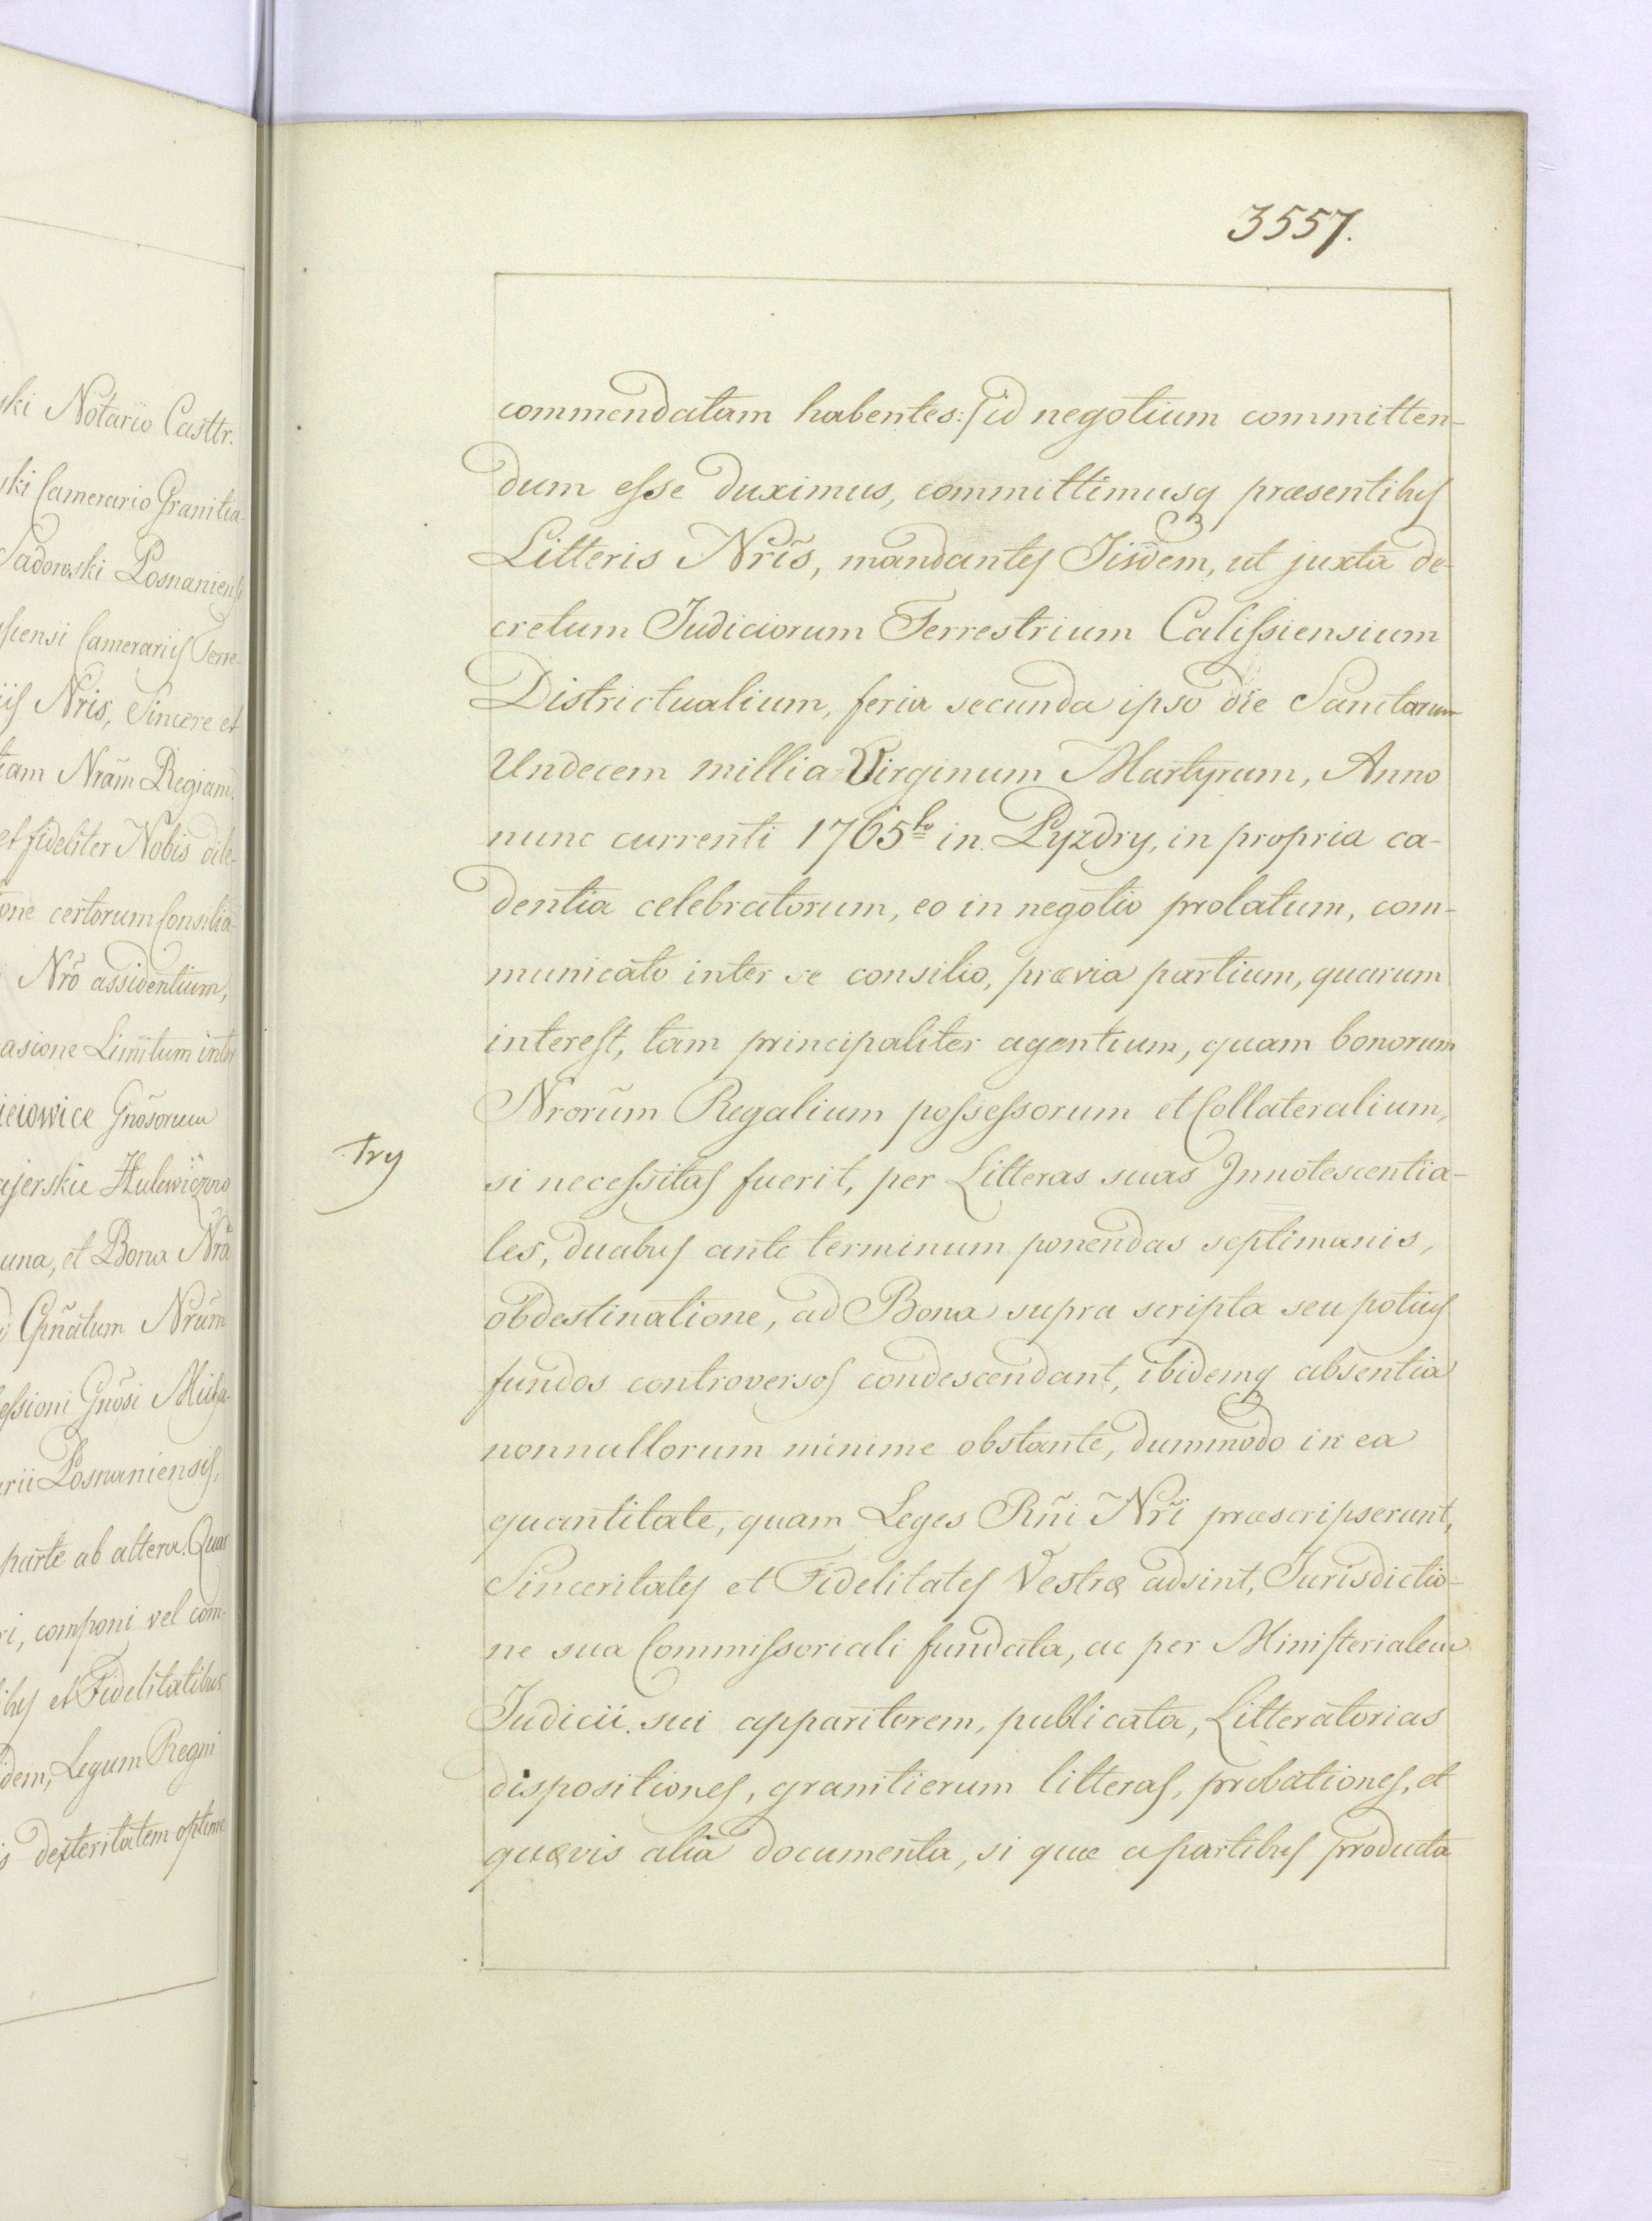 ski Notario Casttr.
ski Camerario Granitia-
Sadowski Posnaniensi
siensi Camerariis Terre-
iis Nris, Sincere et
tam Nrãm Regiam
et fideliter Nobis dile-
one certorum Consilia-
Nrõ assidentium,
asione Limitum inter
ieiowice Gnosorum
ajerskie Hulewiczow
una, et Bona Nrã
Gnãtum Nrũm
essioni Gnõsi
rii Posnaniensis,
parte ab altera. Quas
ri, componi vel com-
ibus et Fidelitatibus
idem, Legum Regni
s dexteritatem optime
3557.
commendatam habentes:/ id negotium committen-
dum esse duximus, committimusq præsentibus
Litteris Nrĩs, mandantes Iisdem, ut juxta de-
cretum Judiciorum Terrestrium Calissiensium
Districtualium, feria secunda ipso die Sanctarum
Undecem millia Virginum Martyrum, Anno
nunc currenti 1765to in Pyzdry, in propria ca-
dentia celebratorum, eo in negotio prolatum, com-
municato inter se consilio, prævia partium, quarum
interest, tam principaliter agentium, quam bonorum
Nrorũm Regalium possessorum et Collateralium,
try
si necessitas fuerit, per Litteras suas Innotescentia-
les, duabus ante terminum ponendas septimanis,
obdestinatione, ad Bona supra scripta seu potius
fundos controversos condescendant, ibidemq absentia
nonnullorum minime obstante, dummodo in ea
quantitate, quam Leges Rñi Nrĩ præscripserunt,
Sinceritates et Fidelitates Vestræ adsint, Jurisdictio-
ne sua Commissoriali fundata, ac per Ministerialem
Judicii sui apparitorem, publicata, Litteratorias
dispositiones, granitierum litteras, probationes, et
quævis alia documenta, si quæ a partibus producta